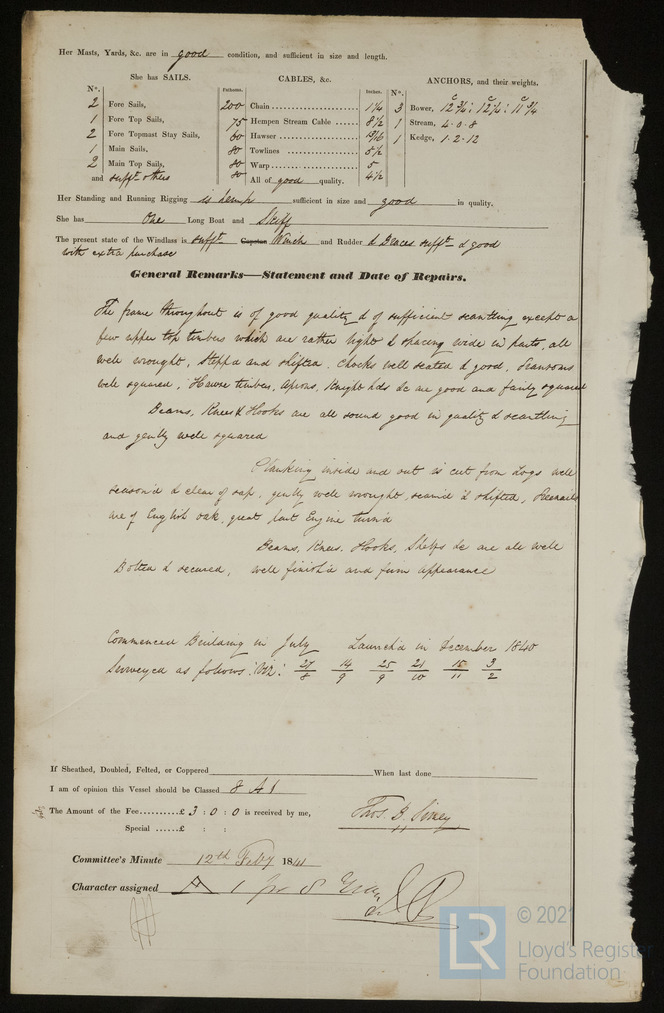 Her Masts, Yards, &c. are in good condition, and sufficient in size and length.
She has SAILS.
CABLES, &c.
ANCHORS, and their weights.
N°.
Fathoms.
Inches.
N°.
2 Fore Sails, 200 Chain 1 1/4 3 Bower, 12 3/4; 12 1/4; 11 3/4
1 Fore Top Sails, 75 Hempen Stream Cable 8 1/2 1 Stream, 4. 0. 8
2 Fore Topmast Stay Sails, 80 Hawser 1 Kedge, 1. 2. 12
1 Main Sails, 80 Towlines 5 1/2
2 Main Top Sails, 80 Warp 5
and sufft others 80 All of good quality. 4 1/2
Her Standing and Running Rigging is hemp sufficient in size and good in quality.
She has One Long Boat and Skiff
The present state of the Windlass is sufft Capstan Winch and Rudder & Braces sufft & good
with extra purchase
General Remarks—Statement and Date of Repairs.
The frame throughout is of good quality & of sufficient scantling except a
few upper top timbers which are rather light & spacing wide in parts, all
well wrought, Stepp'd and shifted. Chocks well seated & good, Transoms
well squared, Hawse timbers, Aprons, Knight hds &c are good and fairly squared
Beams, Knees & Hooks are all sound good in quality & scantling
and gently well squared
Planking inside and out is cut from Logs well
season'd & clear of sap, gently well wrought, seam'd & shifted, Treenails
are of English oak, great part Engine turn'd
Beams, Knees, Hooks, Shelfs &c are all well
Bolted & secured, well finish'd and firm appearance
Commenced Building in July Launch'd in December 1840
Surveyed as follows: Viz: 27/8 14/9 25/9 21/10 15/11 3/2
If Sheathed, Doubled, Felted, or Coppered When last done
I am of opinion this Vessel should be Classed 8 A 1
The Amount of the Fee £ 3 : 0 : 0 is received by me,
Special £ : :
Thos. B. Simey
Committee's Minute 12th Feby 1841
Character assigned A 1 for 8 Years
LR
© 2021
Lloyd's Register
Foundation